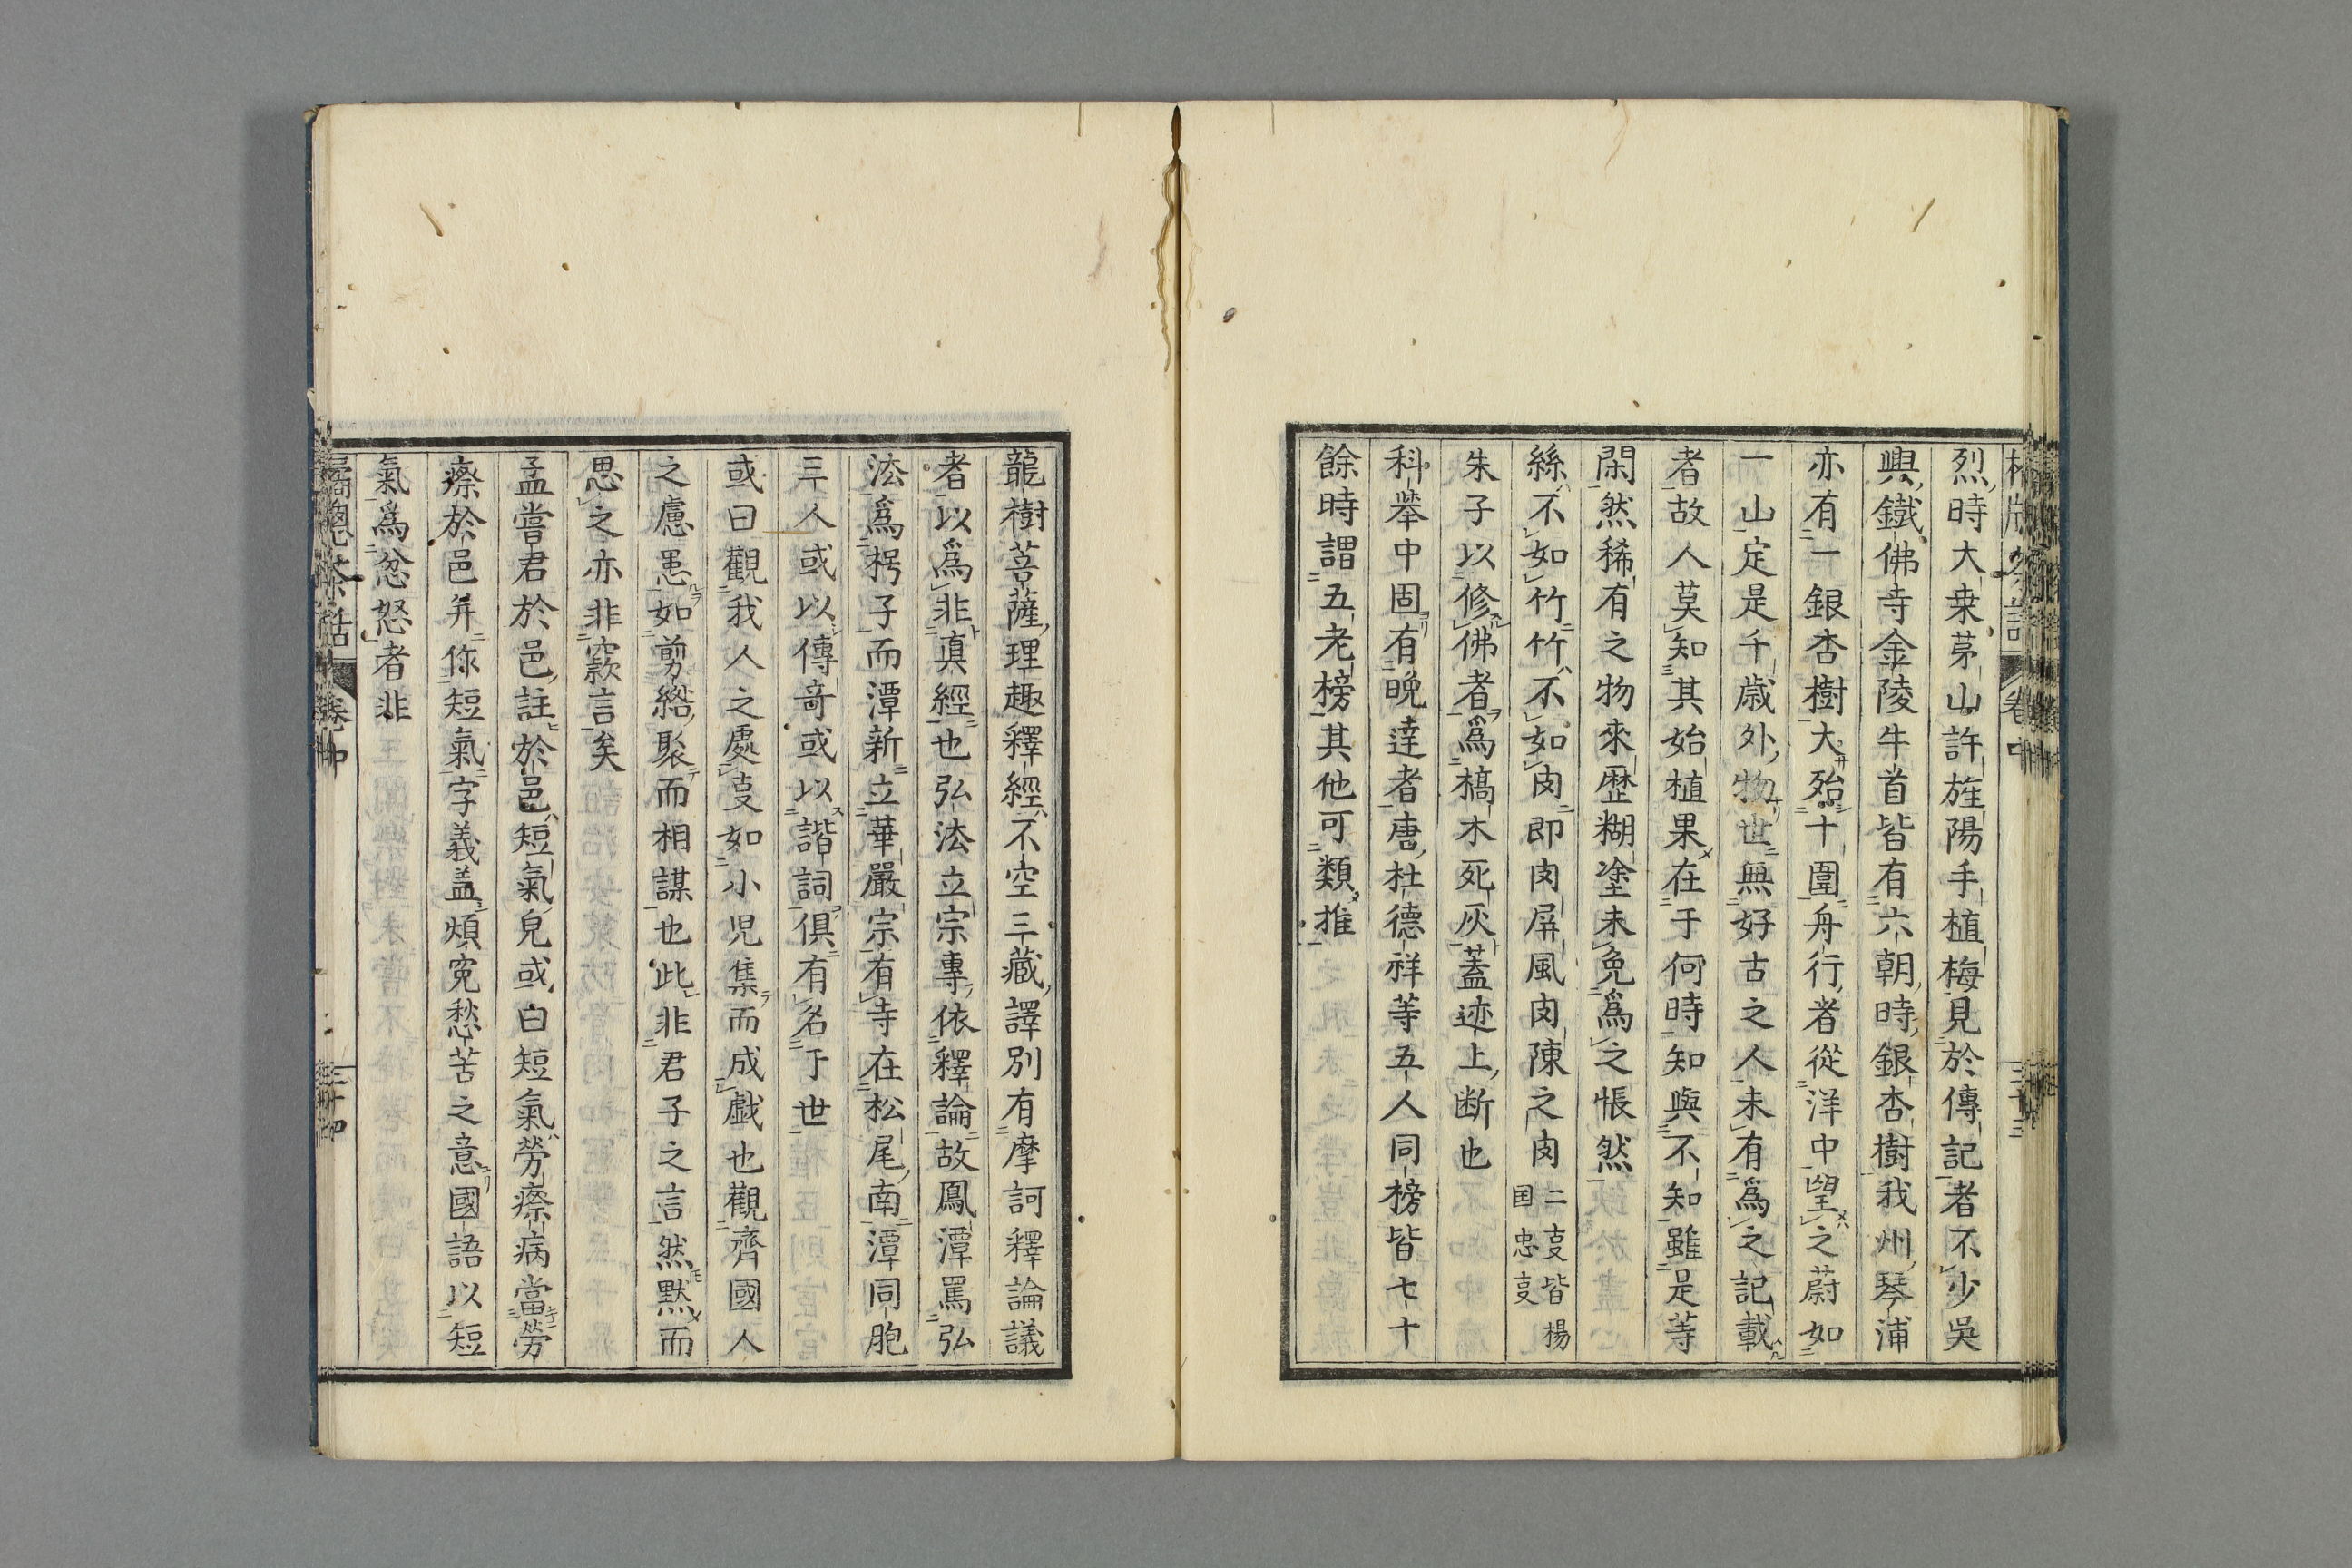 烈時大桒茅山許旌陽手植梅見於傳記者不少吳
興鐵佛寺金陵牛首皆有六朝時銀杏樹我州琴浦
亦有一銀杏樹大殆十圍舟行者從洋中望之蔚如
一山定是千歳外物世無好古之人未有爲之記載
者故人莫知其始植果在于何時知與不知雖是等
閑然稀有之物來歴糊塗未免爲之悵然
絲不如竹竹不如肉即肉屏風肉陳之肉二叓皆楊
国忠叓
朱子以修佛者爲槁木死灰蓋迹上断也
科擧中固有晩達者唐杜德祥等五人同榜皆七十
餘時謂五老榜其他可類推
龍樹菩薩理趣釋經不空三藏譯別有摩訶釋論議
者以爲非眞經也弘法立宗專依釋論故鳳潭罵弘
法爲楞子而潭新立華嚴宗有寺在松尾南潭同胞
三人或以傳竒或以諧詞俱有名于世
或曰觀我人之處叓如小児集而成戯也觀齊國人
之慮患如剪綹聚而相謀也此非君子之言然默而
思之亦非窾言矣
孟嘗君於邑註於邑短氣皃或白短氣勞瘵病當勞
瘵於邑并你短氣字義盖煩寃愁苦之意國語以短
氣爲忿怒者非
窻茶話 卷中 三十四